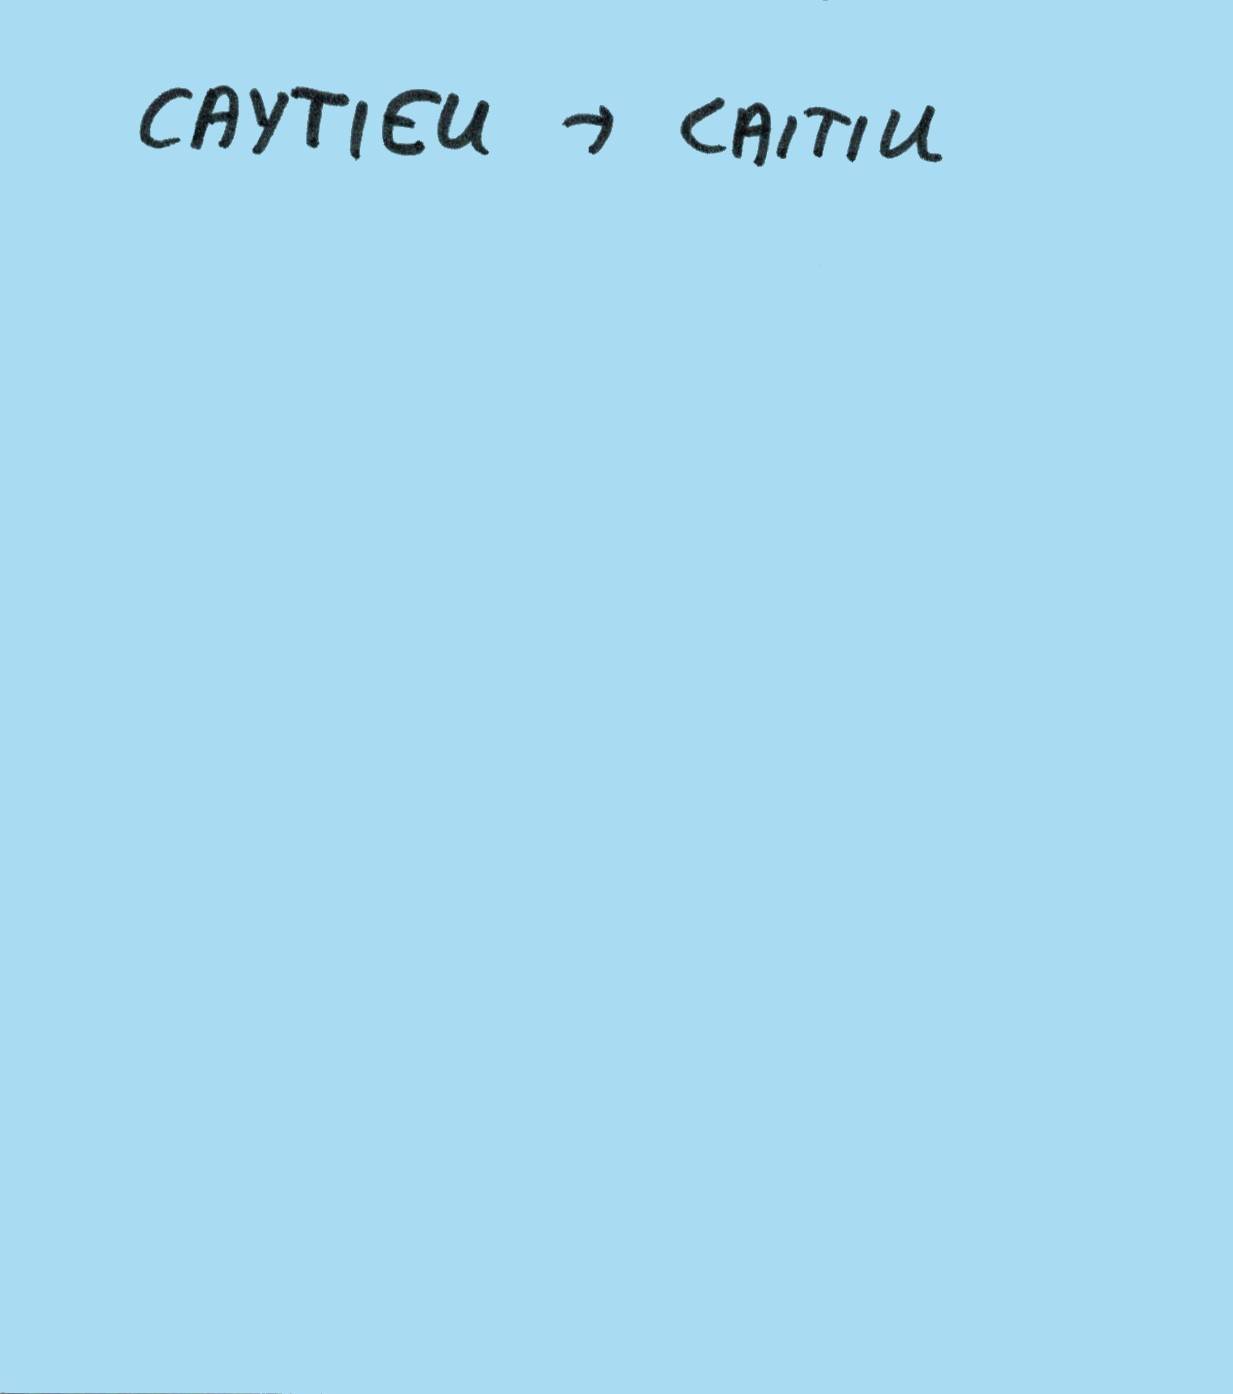 CAYTIEU → CAITIU